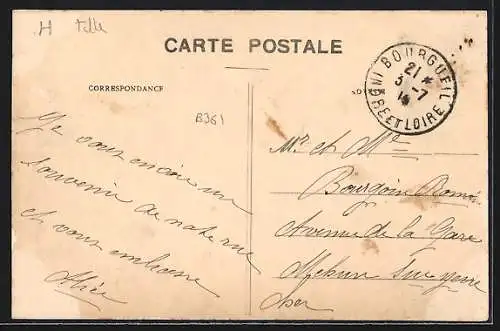 H Telle
CARTE POSTALE
CORRESPONDANCE
B361
BOURGUEIL
21 *
3 - 7
14
INDRE ET LOIRE
Je vous envoie un
souvenir de notre rue
et vous embrasse
Alice
Mr. et Me.
Bourgoin René
Avenue de la Gare
Mehun sur yevre
cher